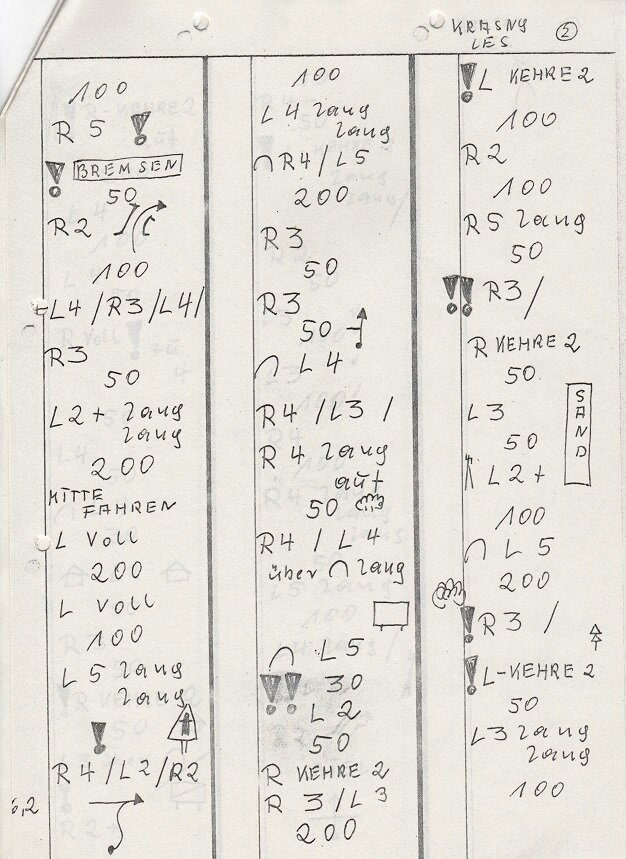 KRASNY
LES
2
100
R 5 !
! BREMSEN
50
R2
100
L4 / R3 / L4/
R3
50
L2 + lang
lang
200
MITTE
FAHREN
L Voll
200
L Voll
100
L 5 lang
lang
!
R4 / L2 / R2
6,2
100
L4 lang
lang
R4 / L5
200
R3
50
R3
50
L4
R4 / L3 /
R4 lang
auf
50
R4 / L4
über lang
L5
!! 30
L2
50
R KEHRE 2
R 3 / L3
200
! L KEHRE 2
100
R2
100
R5 lang
50
!! R3 /
R KEHRE 2
50
L3
50
SAND
L2+
100
L 5
200
! R3 /
! L-KEHRE 2
50
L3 lang
lang
100